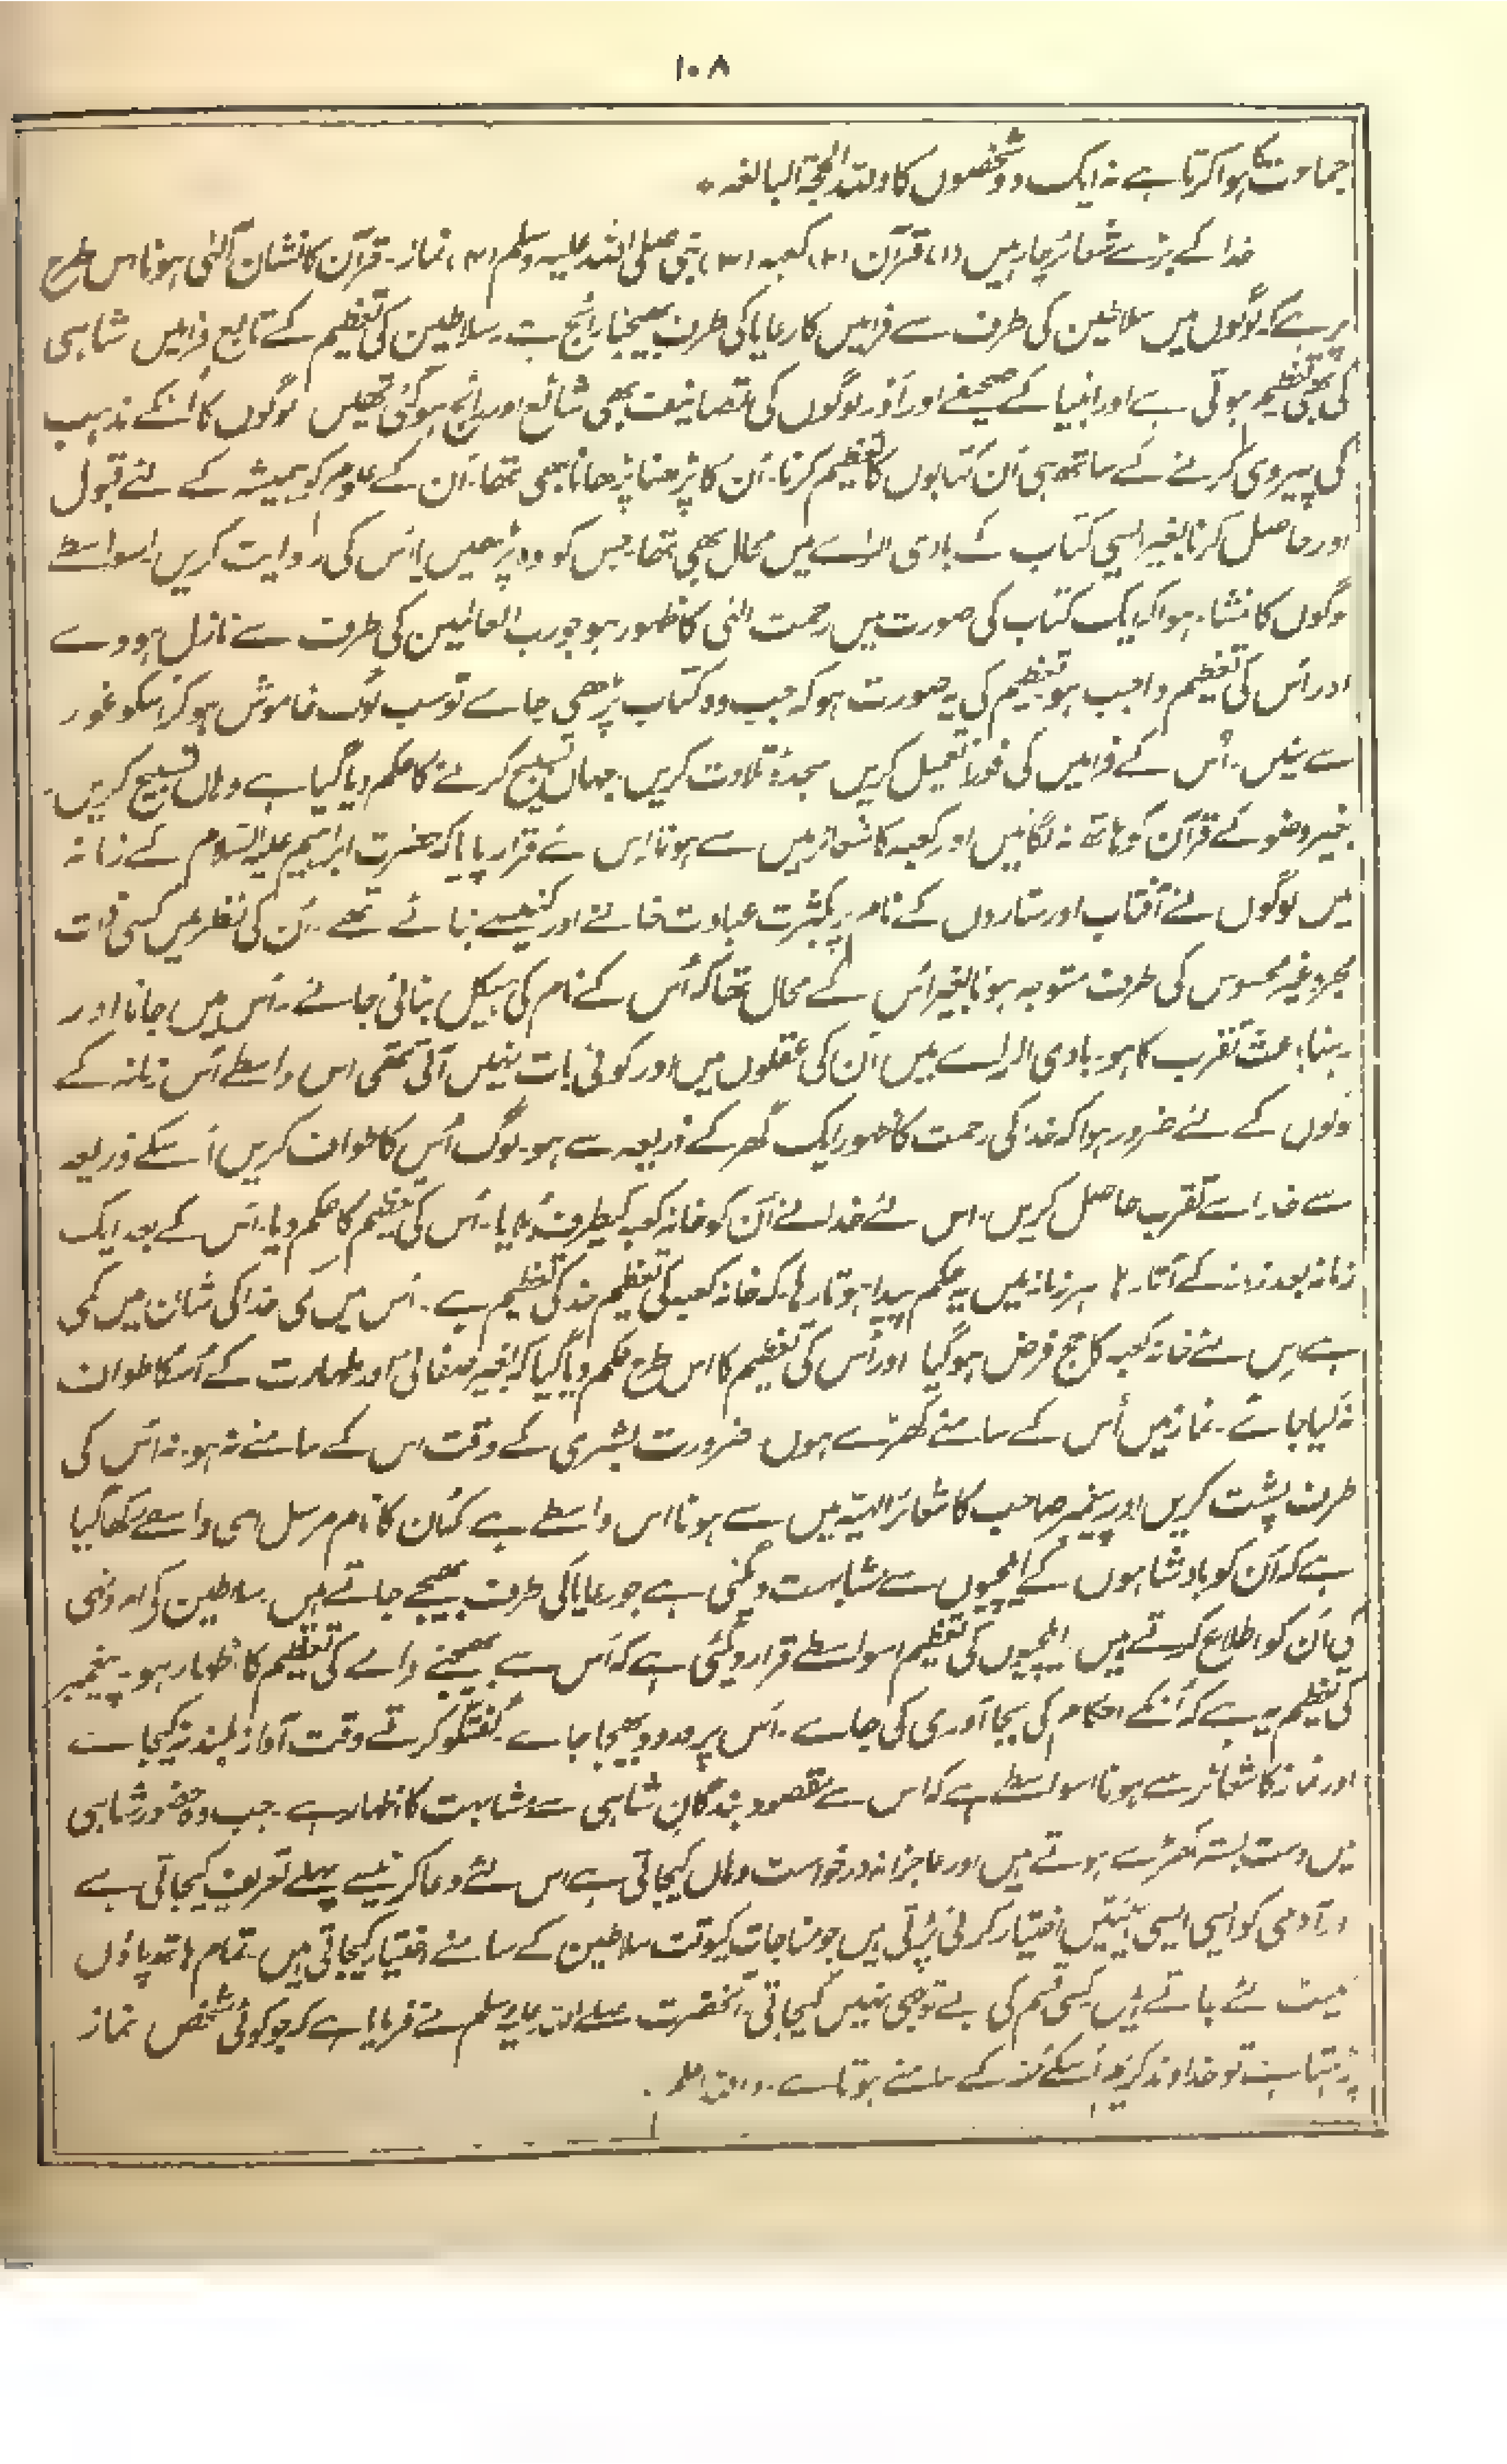 ۱۰۸
جماعت کا ہوا کرتا ہے نہ ایک دو شخصوں کا وللہ الحجۃ البالغہ *
خدا کے بڑے شعائر چار ہیں (۱) قرآن (۲) کعبہ (۳) نبی صلی اللہ علیہ وسلم (۴) نماز۔ قرآن کا نشان الٰہی ہونا اس طرح
پر ہے کہ لوگوں میں سلاطین کی طرف سے فرامین کا رعایا کی طرف بھیجنا رائج ہے۔ سلاطین کی تعظیم کے تابع فرامین شاہی
کی بھی تعظیم ہوتی ہے اور انبیا کے صحیفے اور اَور لوگوں کی تصانیف بھی شائع اور رائج ہو گئی تھیں لوگوں کا اُنکے مذہب
کی پیروی کرنے کے ساتھ ہی اُن کتابوں کا تعظیم کرنا۔ اُن کا پڑھنا پڑھانا بھی تھا۔ اُن کے علوم کو ہمیشہ کے لئے قبول
اور حاصل کرنا بغیر ایسی کتاب کے بادی الراے میں محال بھی تھا جس کو وہ پڑھیں یا اُس کی روایت کریں۔ اسواسطے
لوگوں کا منشاء ہوا کہ ایک کتاب کی صورت میں رحمت الٰہی کا ظہور ہو جو رب العالمین کی طرف سے نازل ہووے
اور اُس کی تعظیم واجب ہو۔ تعظیم کی یہ صورت ہو کہ جب وہ کتاب پڑھی جاے تو سب لوگ خاموش ہو کر اسکو غور
سے سنیں۔ اُس کے فرامین کی فوراً تعمیل کریں سجدۂ تلاوت کریں۔ جہاں تسبیح کرنے کا حکم دیا گیا ہے وہاں تسبیح کریں۔
بغیر وضو کے قرآن کو ہاتھ نہ لگائیں اور کعبہ کا شعائر میں سے ہونا اس لئے قرار پایا کہ حضرت ابراہیم علیہ السلام کے زمانہ
میں لوگوں نے آفتاب اور ستاروں کے نام پر بکثرت عبادت خانے اور کنیسے بنائے تھے۔ اُن کی نظر میں کسی ذات
مجرد غیر محسوس کی طرف متوجہ ہونا بغیر اُس کے محال تھا کہ اُس کے نام کی ہیکل بنائی جائے۔ اُس میں جانا اور
رہنا باعث تقرب کا ہو۔ بادی الراے میں اُن کی عقلوں میں اور کوئی بات نہیں آتی تھی اس واسطے اُس زمانہ کے
لوگوں کے لئے ضرور ہوا کہ خدا کی رحمت کا ظہور ایک گھر کے ذریعہ سے ہو۔ لوگ اُس کا طواف کریں اُسکے ذریعہ
سے خدا سے تقرب حاصل کریں۔ اس لئے خدا نے اُن کو خانہ کعبہ کیطرف بُلایا۔ اُس کی تعظیم کا حکم دیا۔ اُس کے بعد ایک
زمانہ بعد زمانہ کے آتا رہا ہر زمانہ میں یہ حکم پیدا ہوتا رہا۔ کہ خانہ کعبہ کی تعظیم خدا کی تعظیم ہے۔ اُس میں کمی خدا کی شان میں کمی
ہے اِس لئے خانہ کعبہ کا حج فرض ہو گیا اور اُس کی تعظیم کا اس طرح حکم دیا گیا کہ بغیر صفائی اور طہارت کے اُسکا طواف
نہ کیا جائے۔ نماز میں اُس کے سامنے کھڑے ہوں ضرورت بشری کے وقت اس کے سامنے نہ ہو۔ نہ اُس کی
طرف پشت کریں اور پیغمبر صاحب کا شعائر الٰہیہ میں سے ہونا اس واسطے ہے کہ اُن کا نام مرسل اسی واسطے رکھا گیا
ہے کہ اُن کو بادشاہوں کے ایلچیوں سے مشابہت دیگئی ہے جو رعایا کی طرف بھیجے جاتے ہیں۔ سلاطین کے امر و نہی
کی اُن کو اطلاع کرتے ہیں۔ ایلچیوں کی تعظیم اسواسطے قرار دیگئی ہے کہ اُس سے بھیجنے والے کی تعظیم کا اظہار ہو۔ پیغمبر
کی تعظیم یہ ہے کہ اُنکے احکام کی بجا آوری کی جاے۔ اُس پر درود بھیجا جاے۔ گفتگو کرتے وقت آواز بلند نہ کیجاے
اور نماز کا شعائر سے ہونا اسواسطے ہے کہ اس سے مقصود بندگان شاہی سے مشابہت کا اظہار ہے۔ جب وہ حضور شاہی
میں دست بستہ کھڑے ہوتے ہیں اور عاجزانہ درخواست وہاں کیجاتی ہے اس لئے دعا کرنیسے پہلے تعریف کیجاتی ہے
اور آدمی کو ایسی ایسی ہیئتیں اختیار کرنی پڑتی ہیں جو مناجات کیوقت سلاطین کے سامنے اختیار کیجاتی ہیں۔ تمام ہاتھ پاؤں
سمیٹ لئے جاتے ہیں کسی قسم کی بے توجہی نہیں کیجاتی۔ آنحضرت صلے اللہ علیہ وسلم نے فرمایا ہے کہ جو کوئی شخص نماز
پڑہتا ہے تو خداوند کریم اُسکے مُنہ کے سامنے ہوتا ہے۔ واللہ اعلم۔